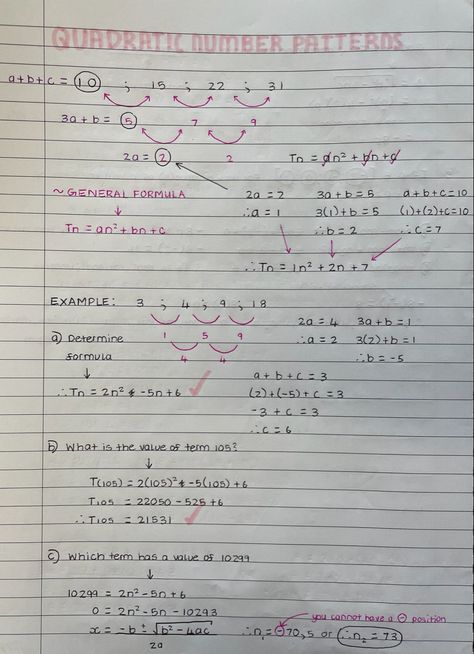 QUADRATIC NUMBER PATTERNS
a+b+c = 10 ; 15 ; 22 ; 31
3a + b = 5 7 9
2a = 2 2 Tn = an² + bn + c
~ GENERAL FORMULA 2a = 2 3a + b = 5 a+b+c=10
∴a = 1 3(1)+b = 5 (1)+(2)+c=10
Tn = an² + bn + c ∴b = 2 ∴c = 7
∴Tn = 1n² + 2n + 7
EXAMPLE: 3 ; 4 ; 9 ; 18
1 5 9 2a = 4 3a + b = 1
a) Determine 4 4 ∴a = 2 3(2)+b = 1
formula ∴b = -5
a + b + c = 3
∴Tn = 2n² -5n + 6 ✓ (2)+(-5)+c = 3
-3 + c = 3
∴c = 6
b) What is the value of term 105?
T(105) = 2(105)² -5(105) + 6
T105 = 22050 - 525 + 6
∴T105 = 21531 ✓
c) Which term has a value of 10299
10299 = 2n² - 5n + 6
0 = 2n² - 5n - 10293
you cannot have a ⊖ position
x = -b ± √b² - 4ac ∴n₁ = -70,5 or ∴n₂ = 73
2a